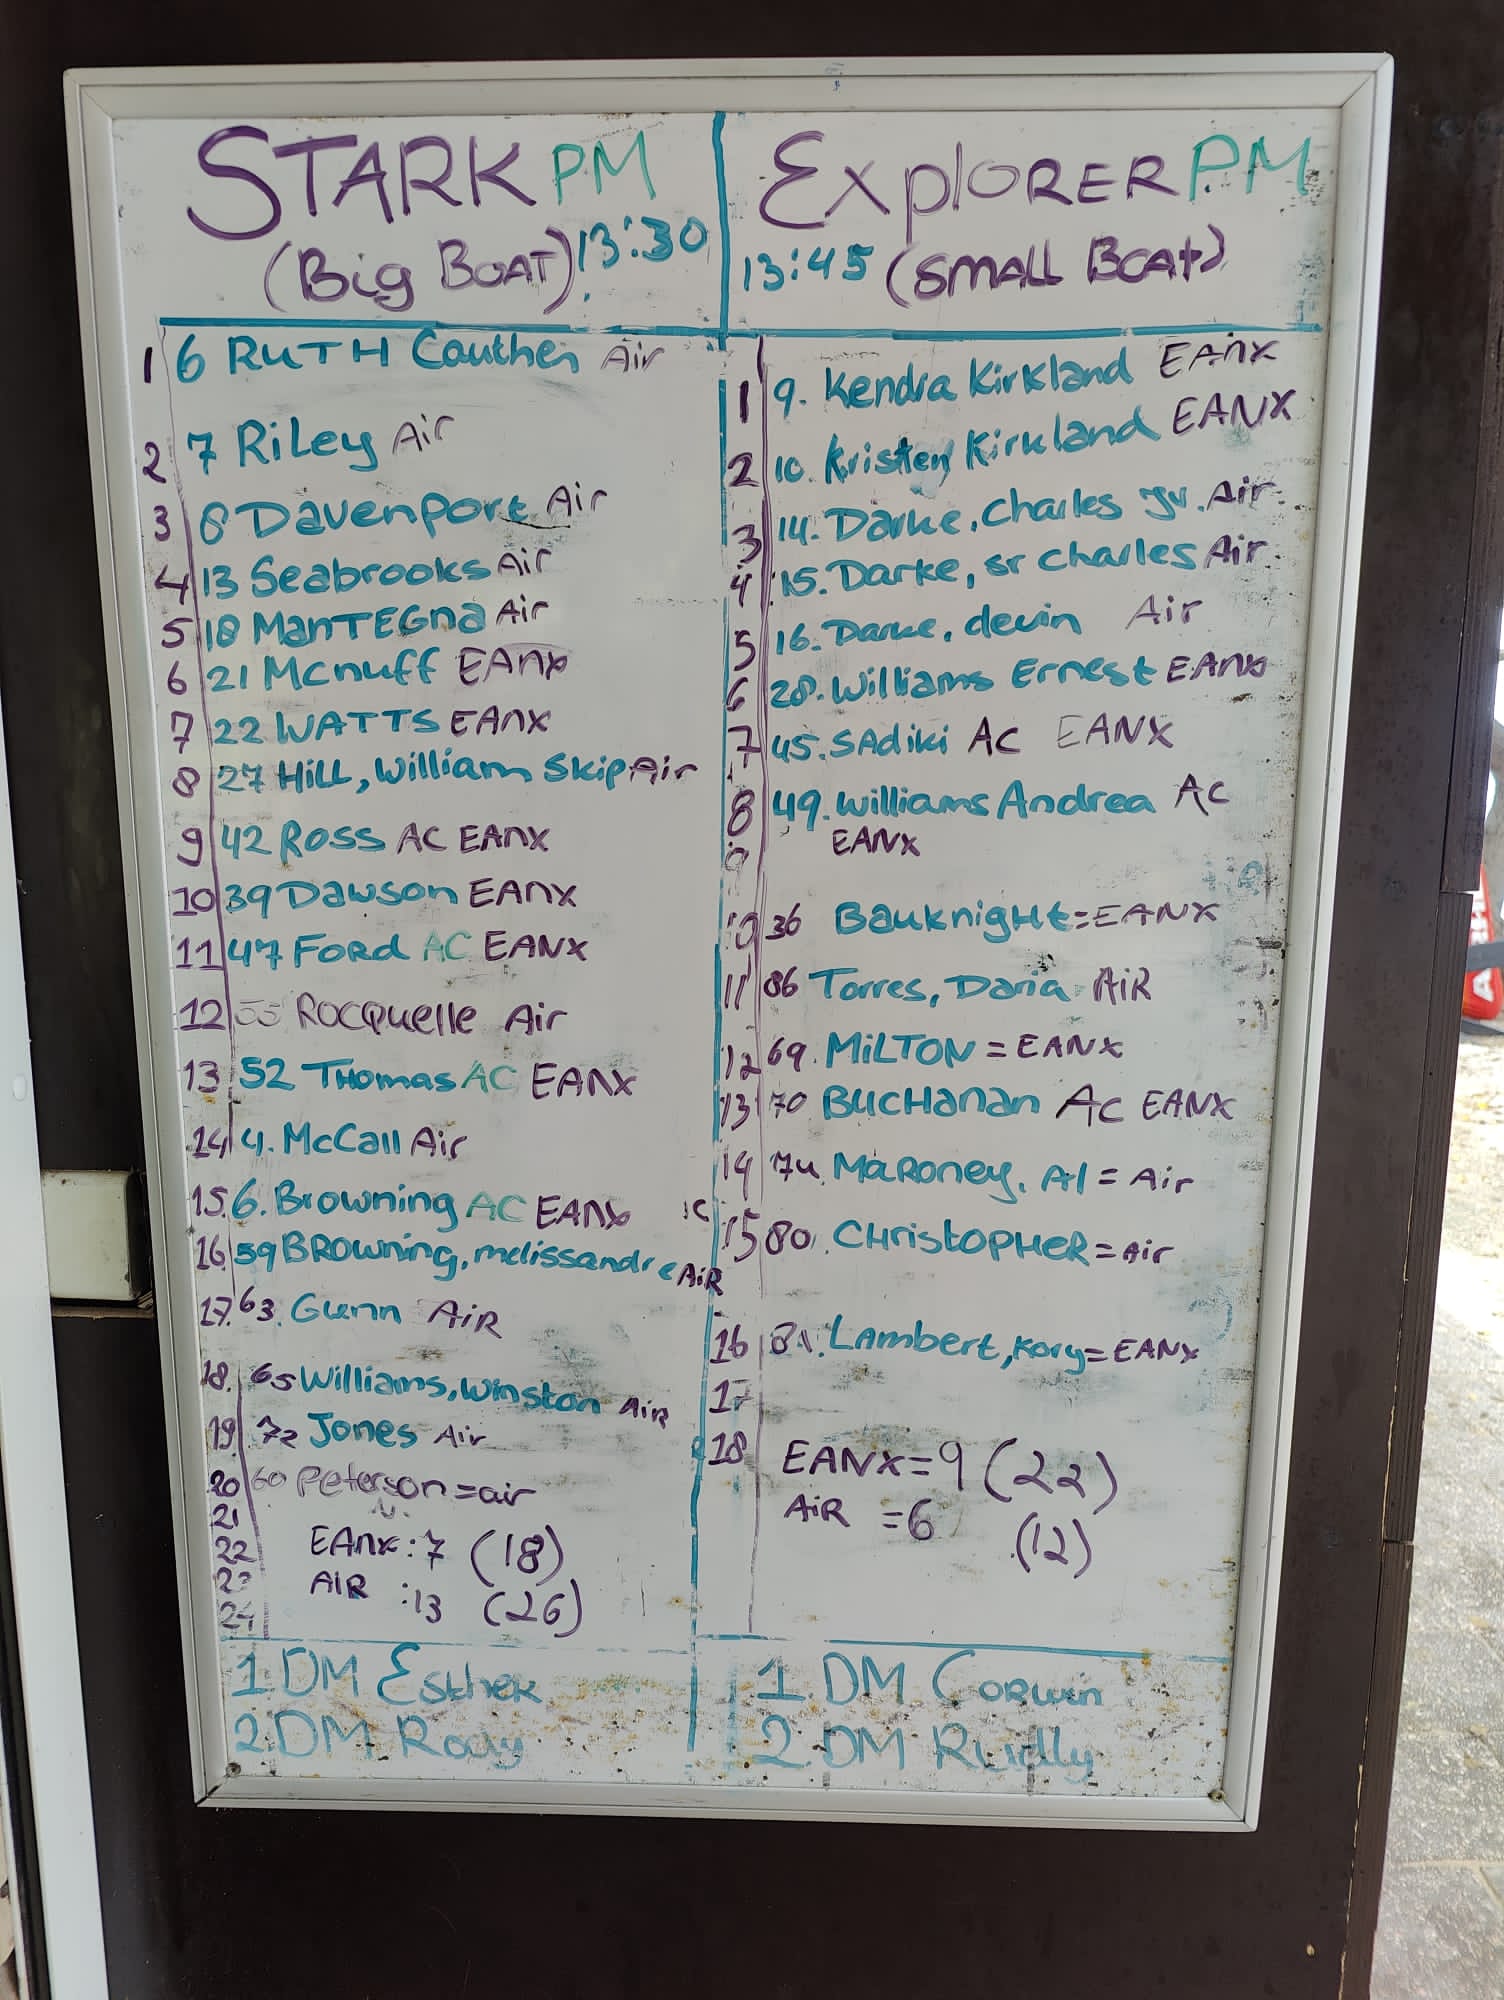 STARK PM
(Big BOAT) 13:30
1 6 RUTH Cauthen Air
2 7 RiLey Air
3 8 Davenport Air
4 13 Seabrooks Air
5 18 ManTEGna Air
6 21 Mcnuff EAnx
7 22 WATTS EAnX
8 27 HiLL, William Skip Air
9 42 Ross AC EAnX
10 39 Dawson EAnX
11 47 Ford AC EANX
12 Rocquelle Air
13 52 Thomas AC EANX
14 4. McCall Air
15. 6. Browning AC EANx
16. 59 BROWning, melissandre AiR
17. 63. Gunn AiR
18. 65 Williams, Winston AiR
19. 72 Jones Air
20 60 Peterson = air
21
22 EAnx : 7 (18)
23 AIR : 13 (26)
24
1 DM Esther
2 DM Rody
ExplORER PM
13:45 (SMALL BOAt)
1 9. Kendra Kirkland EAnX
2 10. Kristen Kirkland EANX
3 14. Darke, Charles Jr. Air
4 15. Darke, sr Charles Air
5 16. Darke, devin Air
6 28. Williams Ernest EANx
7 45. SAdiki AC EANX
8 49. Williams Andrea AC
9 EANX
10 36 Bauknight = EANX
11 86 Torres, Daria AiR
12 69. MiLTON = EANX
13 70 BucHanan AC EANX
14 74. Maroney, Al = Air
15 80. CHristoPHeR = Air
16 81. Lambert, Kory = EANX
17
18 EANX = 9 (22)
AiR = 6 (12)
1 DM Corwin
2 DM Rudly